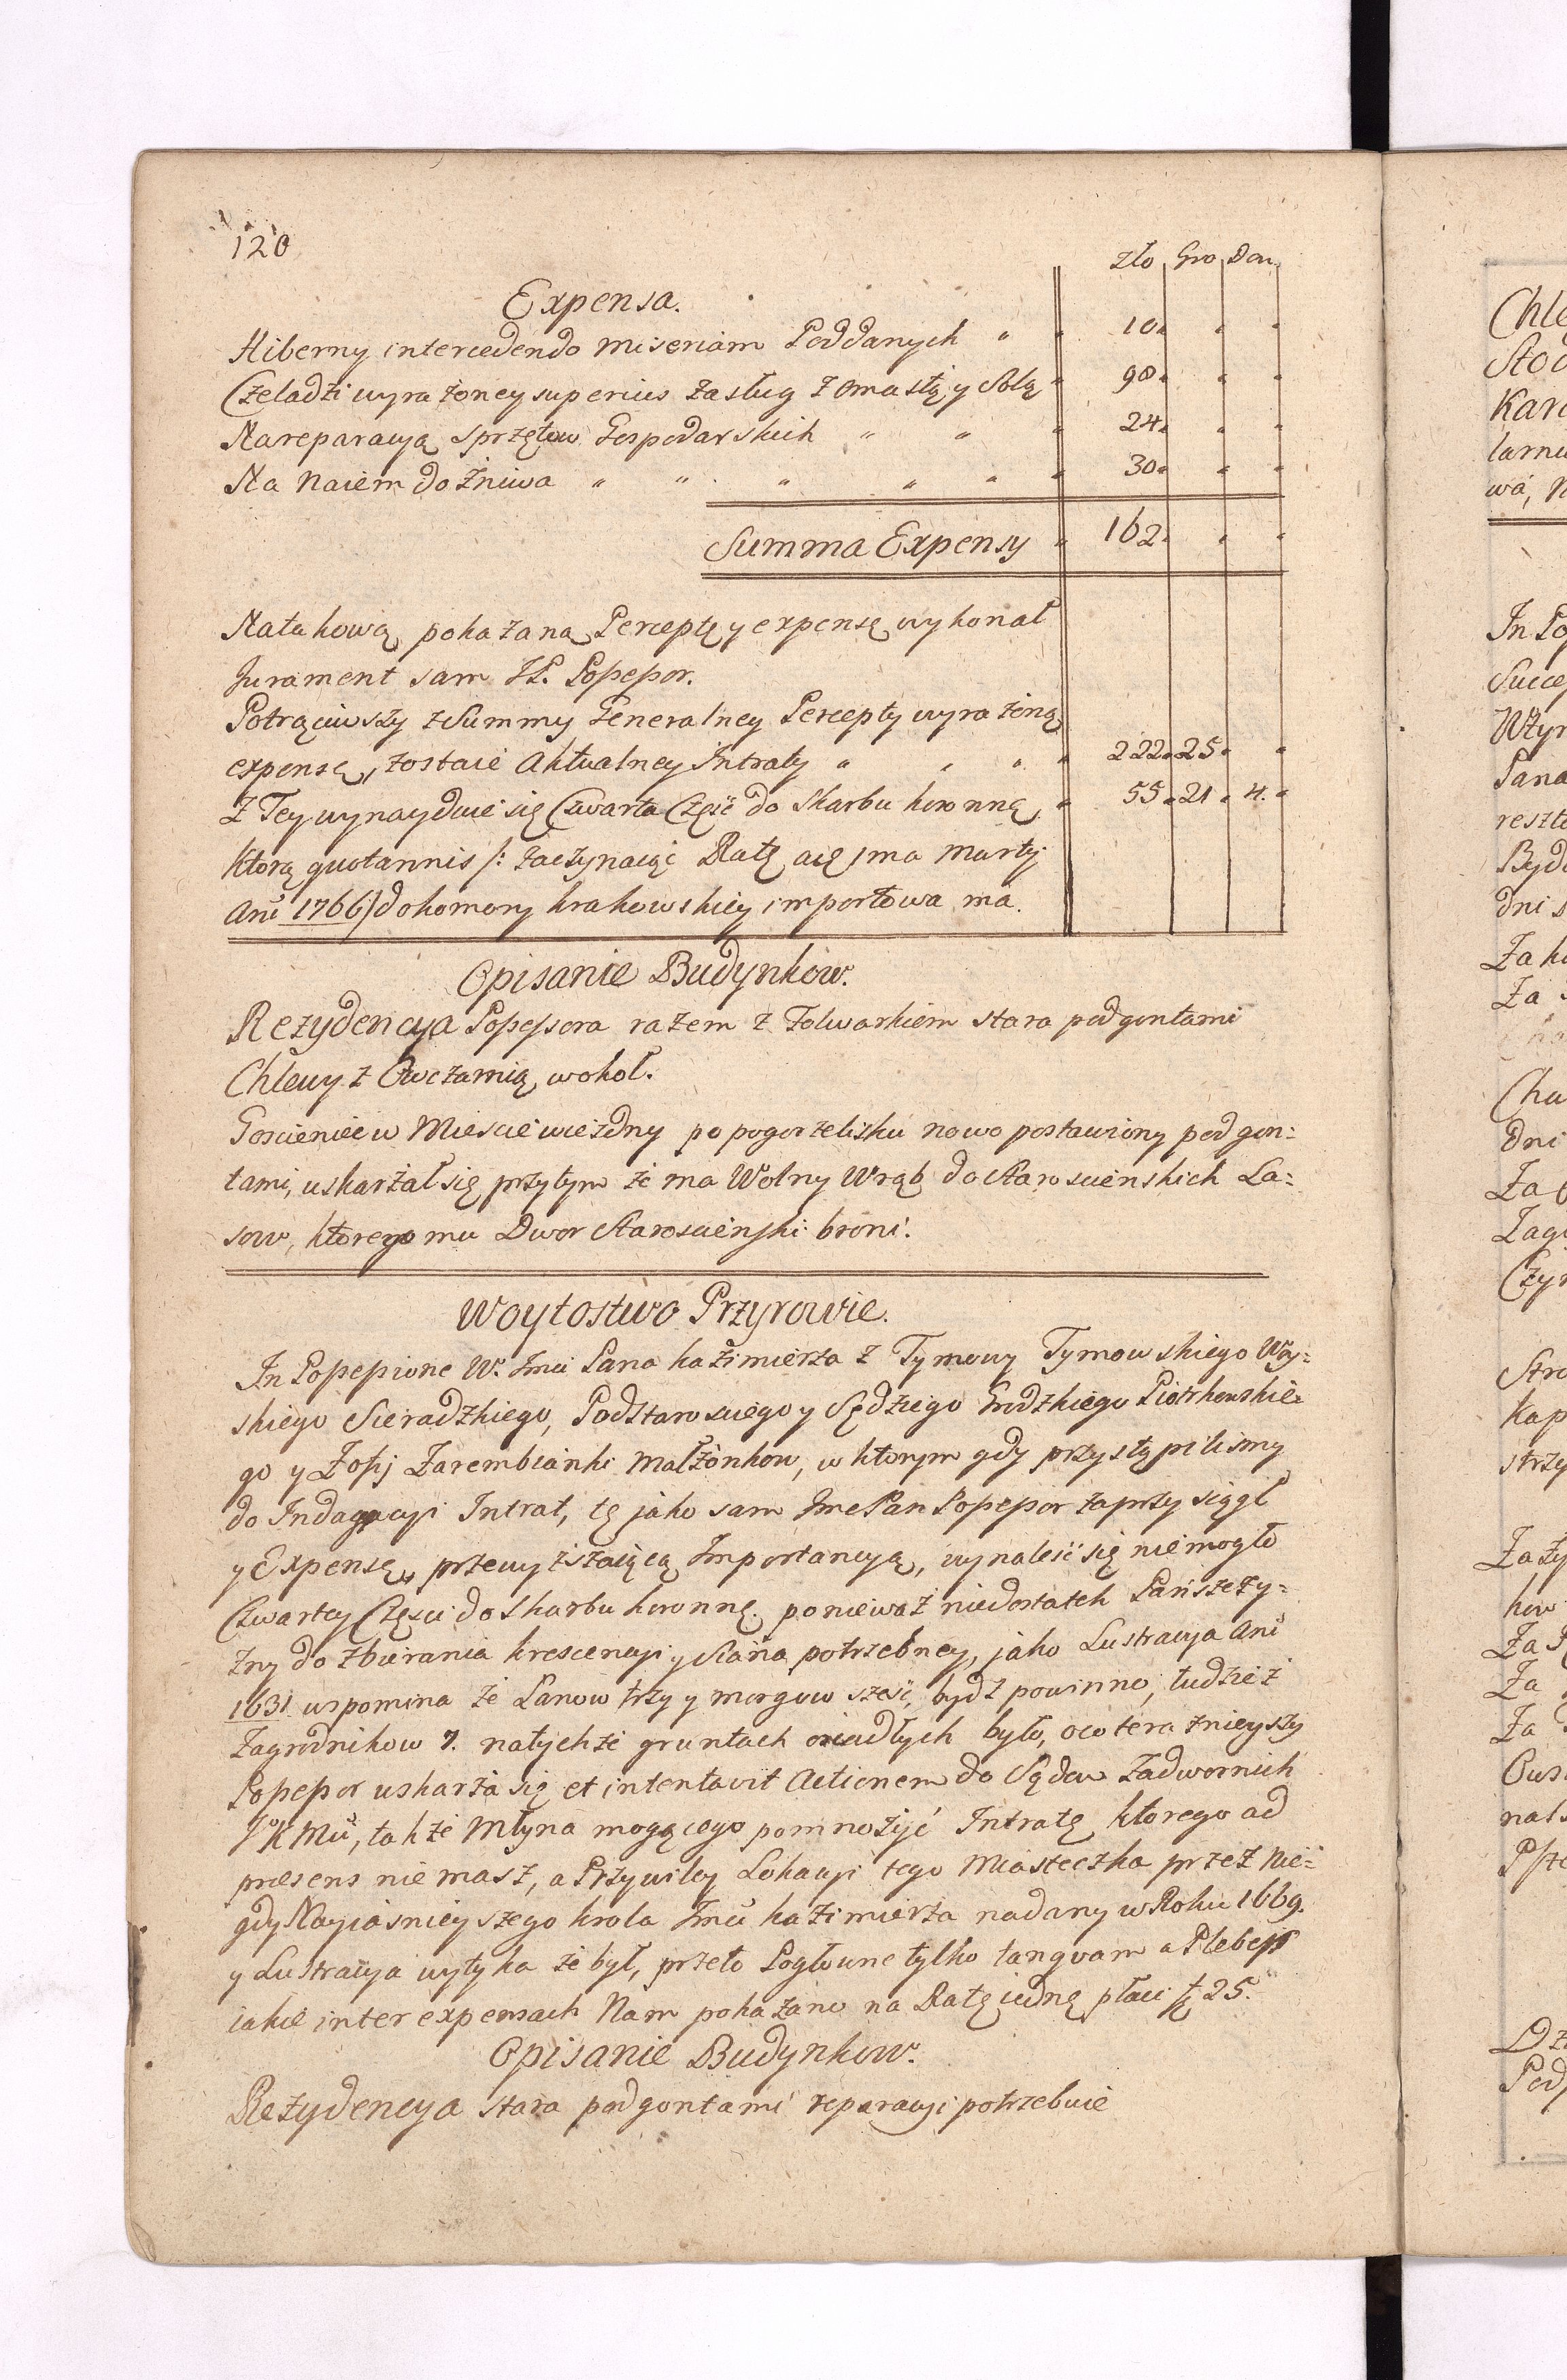 120
zło Gro Den.
Expensa.
Hiberny intercedendo miseriam Poddanych " " 10 " "
Czeladzi wyrażoney superius zasług z omastą y Solą " 98 " "
Na reparacyą sprzętow Gospodarskich " " " 24 " "
Na Naiem do Żniwa " " " " " " 30 " "
Summa Expensy " 162 " "
Na takową pokazaną Perceptę y expensę wykonał
Jurament sam JP. Possessor.
Potrąciwszy z Summy Generalney Percepty wyrażoną
expensę, zostaie Aktualney Intraty " " " " 222 " 25 " "
Z Tey wynayduie się Czwarta Część do Skarbu koronnę " 55 " 21 " 4 "
Ktorą quotannis /: zaczynaiąc Ratę a 1ma Martij
Ani 1766) do komory krakowskiey importowa ma.
Opisanie Budynkow.
Rezydencya Possessora razem z Folwarkiem stara pod gontami
Chlewy z Owczarnią wokoł.
Goscieniec w Miescie wiezdny po pogorzelisku nowo postawiony pod gon:
tami, uskarżał się przytym że ma Wolny Wrąb do Starościenskich La:
sow, ktorego mu Dwor Staroscienski broni.
Woytostwo Przyrowie.
In Possessione W. Jmci Pana Kazimierza z Tymowy Tymowskiego Woy:
skiego Sieradzkiego, Podstarosciego y Sędziego Grodzkiego Piotrkowskie:
go y Zofij Zarembianki Małżonkow, w ktorym gdy przystąpilismy
do Indagacyi Intrat, tę jako sam Jmc Pan Possessor zaprzysiągł
y Expensę, przewyższaiącą Importancyą, wynaleść się niemogło
Czwartey Częsci do Skarbu koronnę. ponieważ niedostatek Pańszczy:
zny do zbierania krescencyi y Siana potrzebney, jako Lustracya Ani
1631 wspomina że Łanow trzy y morgow sześć, bydź powinno, tudzież
Zagrodnikow 7. natychże gruntach osiadłych było, oco teraznieyszy
Possessor uskarża się et intentavit Actionem do Sądow Zadwornich
JoKMci, także Młyna mogącego pomnożyć Intratę ktorego ad
præsens nie masz, a Przywiley Lokacyi tego Miasteczka przez Nie:
gdy Nayiasnieyszego krola Jmci Kazimierza nadany w Roku 1669.
y Lustracya wytyka że był, przeto Pogłowne tylko tanquam a Plebejs
iakie inter expensach Nam pokazano na Ratę iednę płaci zł 25.
Opisanie Budynkow.
Rezydencya stara pod gontami reparacyi potrzebuie